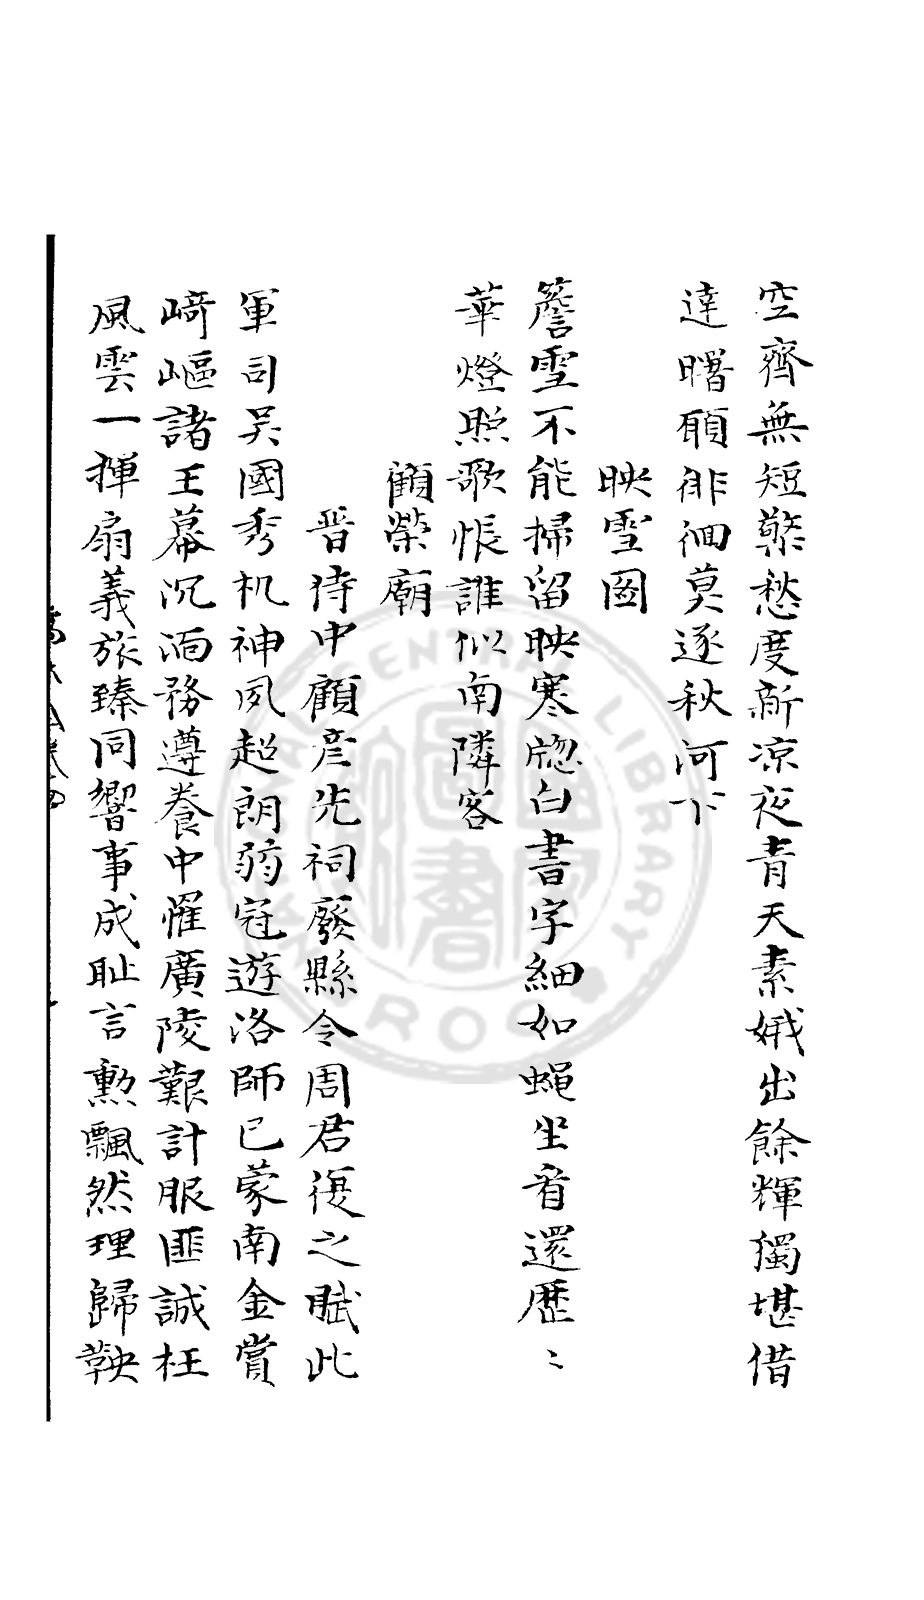 空齊無短檠愁度新凉夜青天素娥出餘輝獨堪借
達曙願徘徊莫逐秋河下
映雪圖
簷雪不能掃留映寒牕白書字細如蠅坐看還歷〻
華燈照歌帳誰似南隣客
顧榮廟
晋侍中顧彦先祠廢縣令周君復之賦此
軍司吳國秀机神夙超朗弱冠遊洛師已蒙南金賞
﨑嶇諸王幕沉湎務遵養中罹廣陵艱計服匪誠枉
風雲一揮扇義旅臻同響事成耻言勲飄然理歸鞅
NATIONAL CENTRAL LIBRARY
R.O.C.